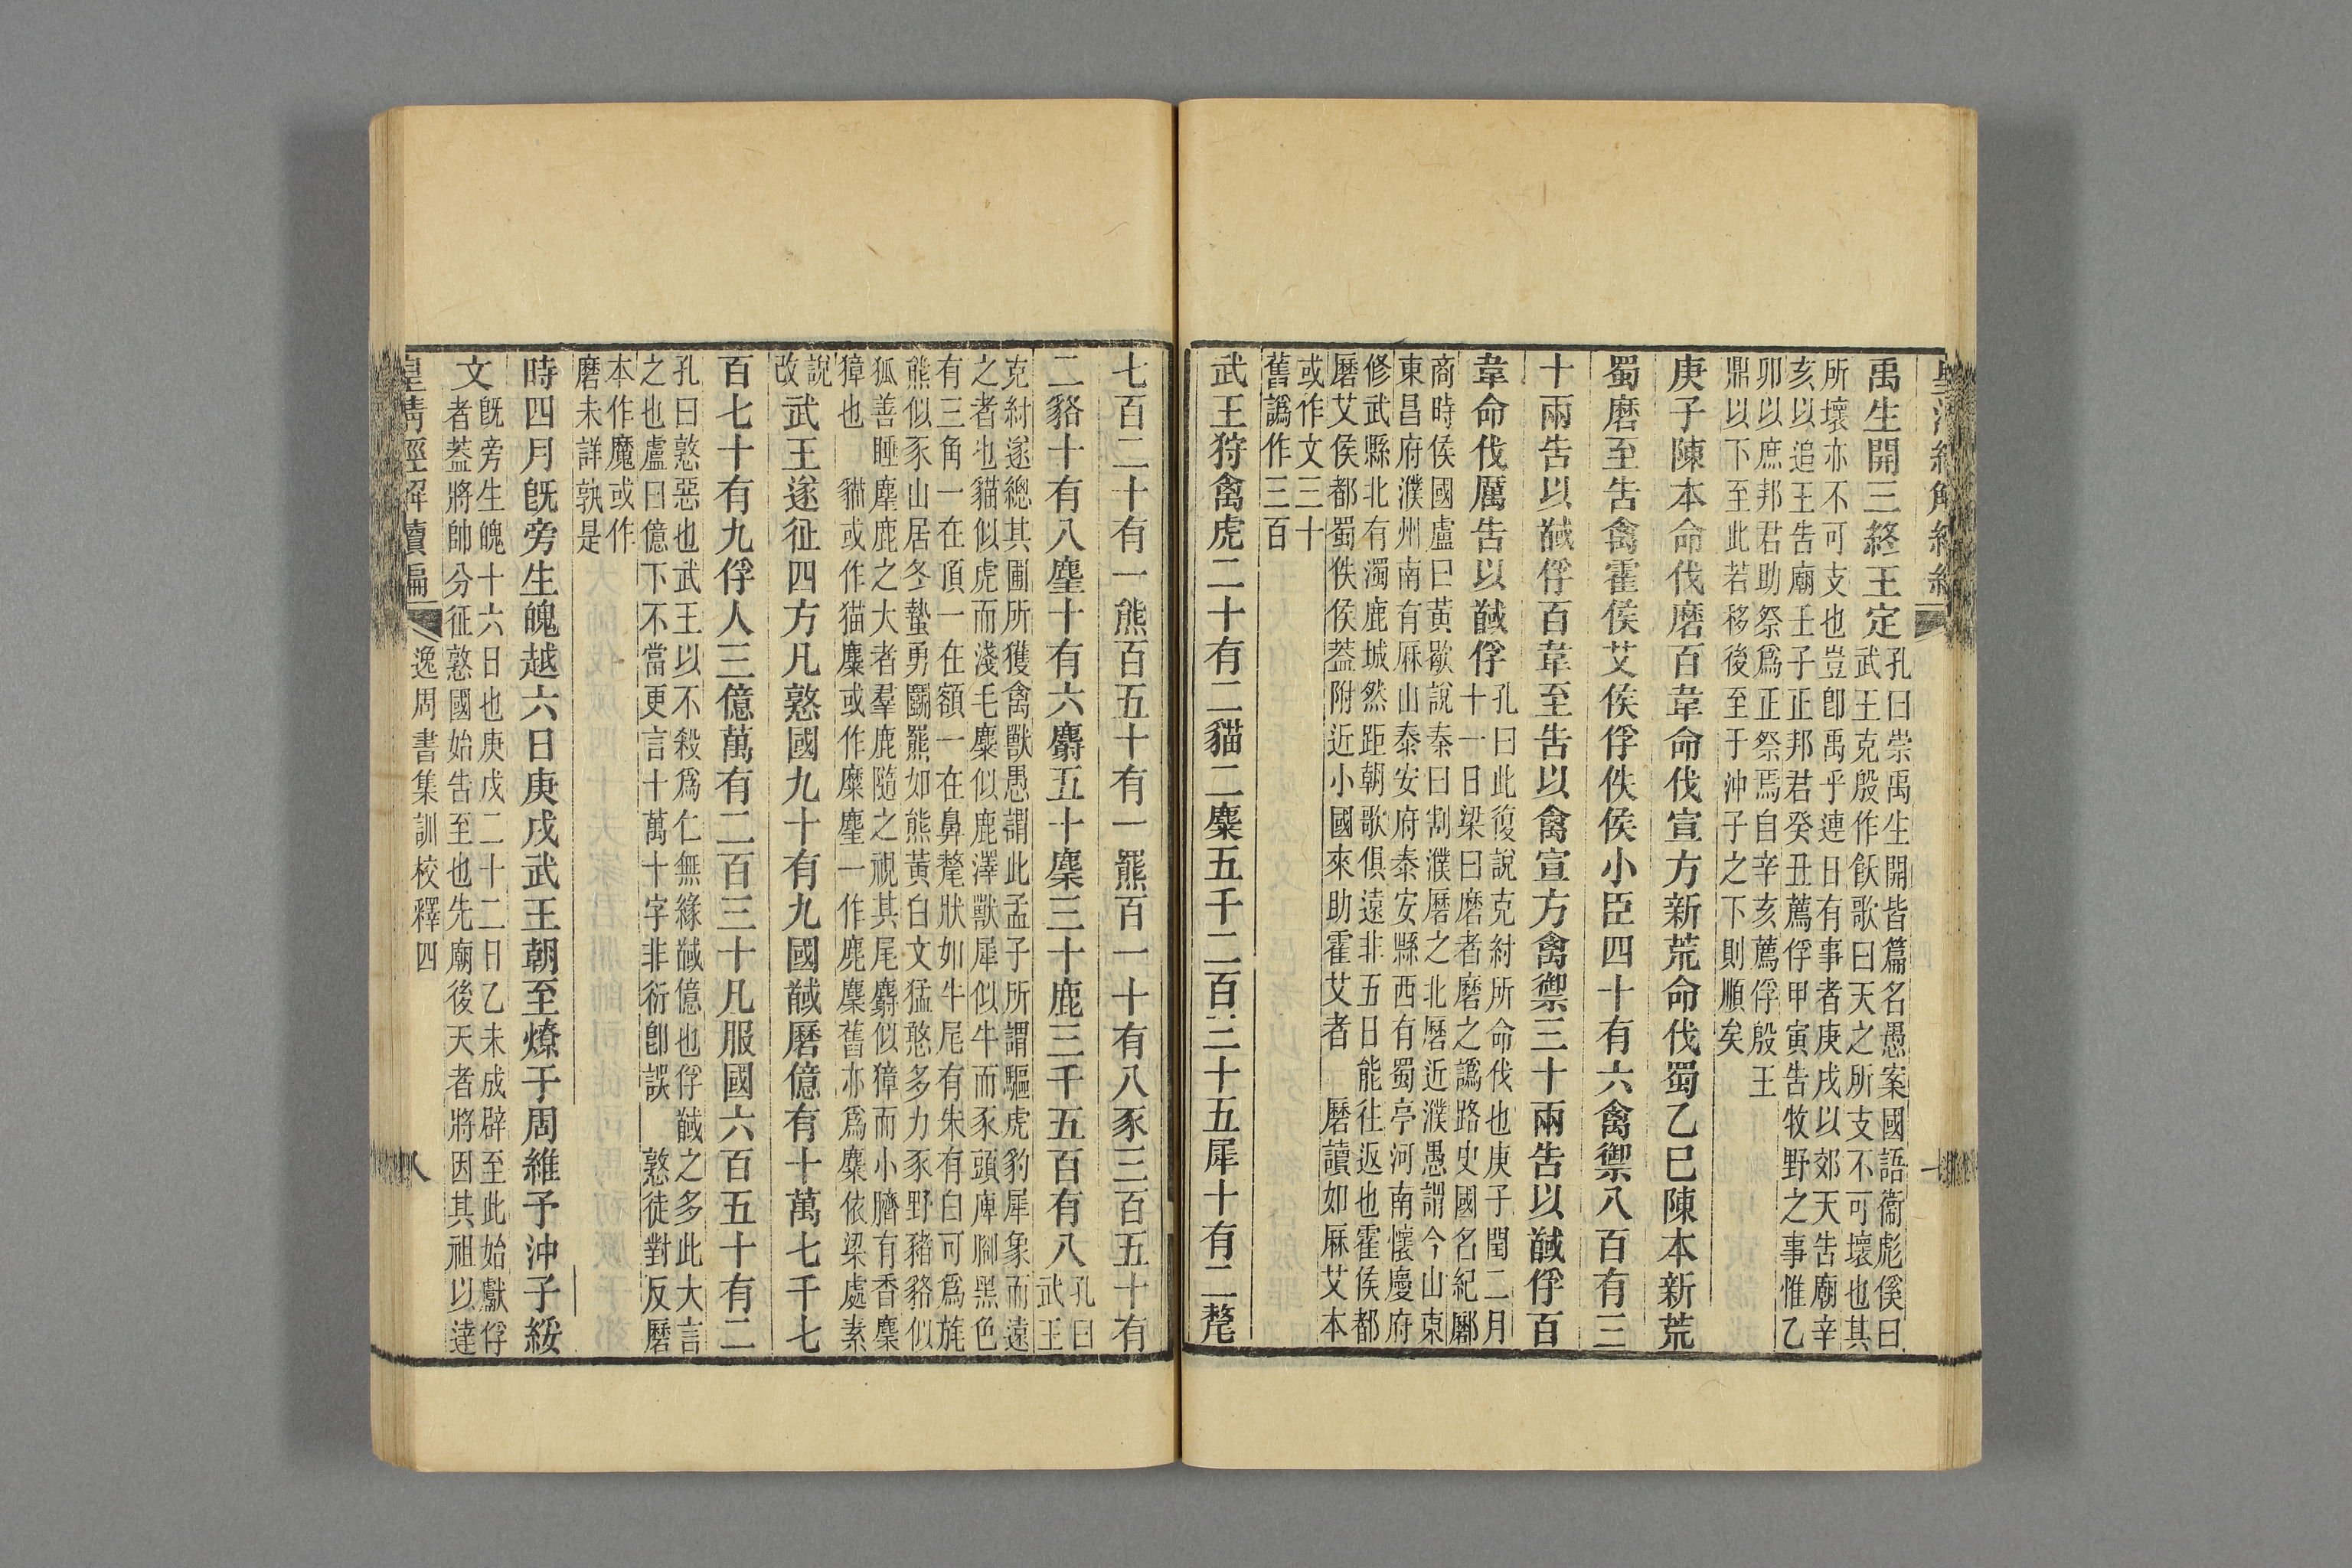 禹生開三終王定
孔曰崇禹生開皆篇名愚案國語衞彪傒曰
武王克殷作飫歌曰天之所支不可壞也其
所壞亦不可支也豈卽禹乎連日有事者庚戌以郊天告廟辛
亥以追王告廟壬子正邦君癸丑薦俘甲寅告牧野之事惟乙
卯以庶邦君助祭爲正祭焉自辛亥薦俘殷王
鼎以下至此若移後至于沖子之下則順矣
庚子陳本命伐磨百韋命伐宣方新荒命伐蜀乙巳陳本新荒
蜀磨至告禽霍侯艾侯俘佚侯小臣四十有六禽禦八百有三
十兩告以馘俘百韋至告以禽宣方禽禦三十兩告以馘俘百
韋命伐厲告以馘俘
孔曰此復說克紂所命伐也庚子閏二月
十一日梁曰磨者磨之譌路史國名紀酈
商時侯國盧曰黃歇說秦曰割濮磨之北磿近濮愚謂今山東
東昌府濮州南有厤山泰安府泰安縣西有蜀亭河南懷慶府
修武縣北有濁鹿城然距朝歌俱遠非五日能往返也霍侯都
磨艾侯都蜀佚侯葢附近小國來助霍艾者 磿讀如厤艾本
或作文三十
舊譌作三百
武王狩禽虎二十有二貓二麋五千二百三十五犀十有二氂
七百二十有一熊百五十有一羆百一十有八豕三百五十有
二貉十有八麈十有六麝五十麋三十鹿三千五百有八
孔曰
武王
克紂遂總其圃所獲禽獸愚謂此孟子所謂驅虎豹犀象而遠
之者也貓似虎而淺毛麋似鹿澤獸犀似牛而豕頭庳腳黑色
有三角一在頂一在額一在鼻氂狀如牛尾有朱有白可爲旄
熊似豕山居冬蟄勇鬭羆如熊黃白文猛憨多力豕野豬貉似
狐善睡麈鹿之大者羣鹿隨之視其尾麝似獐而小臍有香麋
獐也 貓或作猫麋或作糜麈一作麃麋舊亦爲麋依梁處素
說
改
武王遂征四方凡憝國九十有九國馘磿億有十萬七千七
百七十有九俘人三億萬有二百三十凡服國六百五十有二
孔曰憝惡也武王以不殺爲仁無緣馘億也俘馘之多此大言
之也盧曰億下不當更言十萬十字非衍卽誤 憝徒對反磿
本作魔或作
磨未詳孰是
時四月旣旁生魄越六日庚戌武王朝至燎于周維予沖子綏
文
旣旁生魄十六日也庚戌二十二日乙未成辟至此始獻俘
者葢將帥分征憝國始告至也先廟後天者將因其祖以達
皇淸經解續編
逸周書集訓校釋四
八